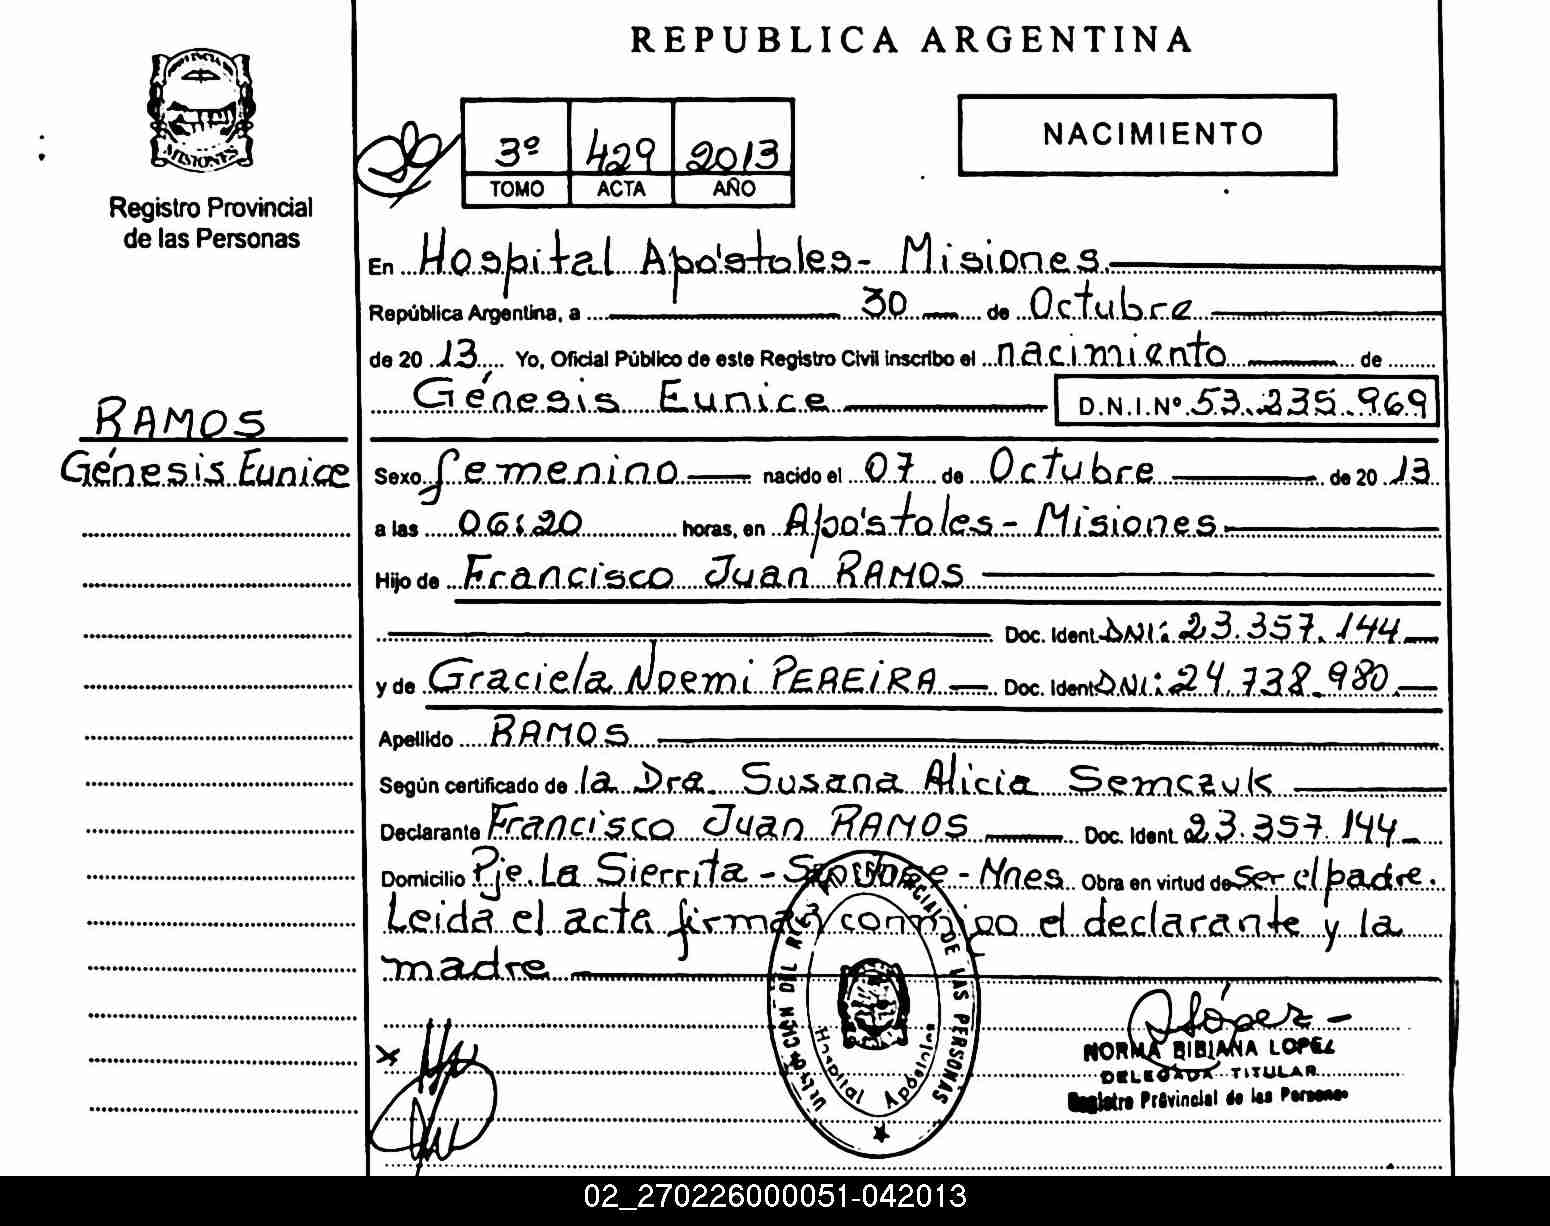 REPUBLICA ARGENTINA
PROVINCIA DE
MISIONES
Registro Provincial
de las Personas
3º 429 2013
TOMO ACTA AÑO
NACIMIENTO
En Hospital Apóstoles - Misiones.
República Argentina, a 30 de Octubre
de 20 13 Yo, Oficial Público de este Registro Civil inscribo el nacimiento de
Génesis Eunice D.N.I.Nº 53.235.969
RAMOS
Génesis Eunice
Sexo femenino nacido el 07 de Octubre de 20 13
a las 06:20 horas, en Apóstoles - Misiones.
Hijo de Francisco Juan RAMOS
Doc. Ident. DNI: 23.357.144
y de Graciela Noemi PEREIRA Doc. Ident. DNI: 24.738.980
Apellido RAMOS
Según certificado de la Dra. Susana Alicia Semczuk
Declarante Francisco Juan RAMOS Doc. Ident. 23.357.144
Domicilio Pje. La Sierrita - San Jose - Mnes. Obra en virtud de ser el padre.
Leída el acta firman conmigo el declarante y la
madre
PROVINCIAL DE LAS PERSONAS
Hospital Apóstoles
López
NORMA BIBIANA LOPEZ
DELEGADA TITULAR
Registro Provincial de las Personas
02_270226000051-042013